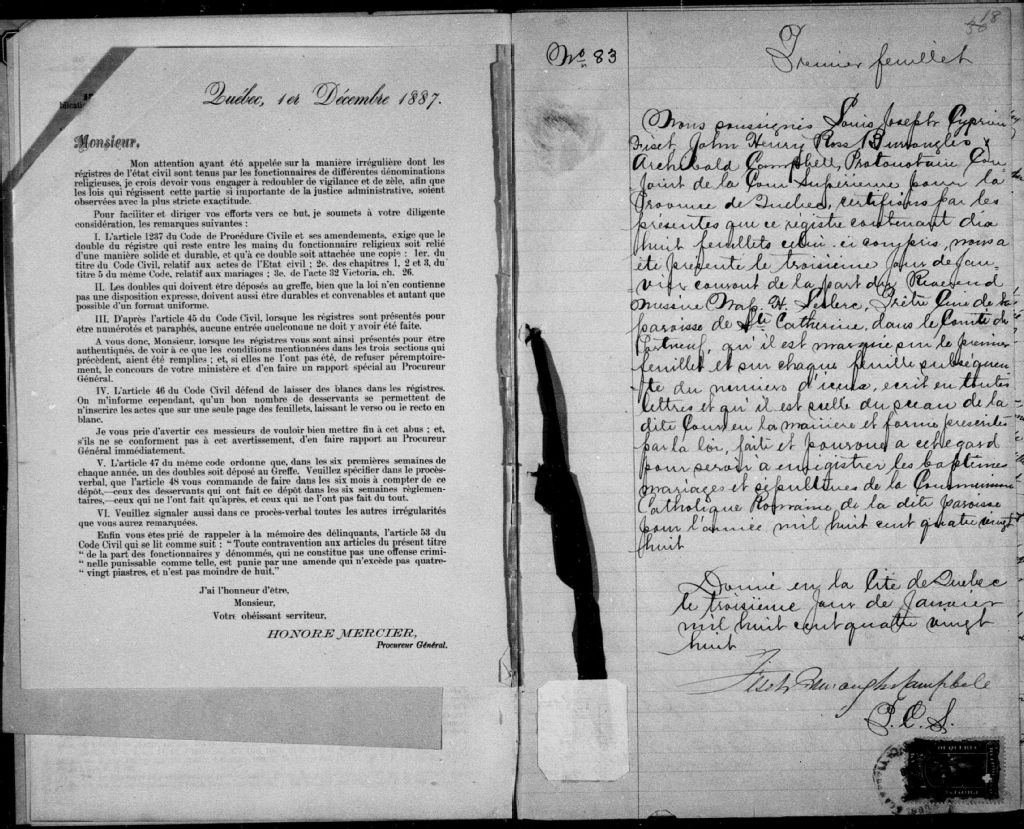 blicati
Québec, 1er Décembre 1887.
Monsieur,
Mon attention ayant été appelée sur la manière irrégulière dont les
régistres de l'état civil sont tenus par les fonctionnaires de différentes dénominations
religieuses, je crois devoir vous engager à redoubler de vigilance et de zèle, afin que
les lois qui régissent cette partie si importante de la justice administrative, soient
observées avec la plus stricte exactitude.
Pour faciliter et diriger vos efforts vers ce but, je soumets à votre diligente
considération, les remarques suivantes :
I. L'article 1237 du Code de Procédure Civile et ses amendements, exige que le
double du régistre qui reste entre les mains du fonctionnaire religieux soit relié
d'une manière solide et durable, et qu'à ce double soit attachée une copie : 1er. du
titre du Code Civil, relatif aux actes de l'Etat civil ; 2e. des chapitres 1, 2 et 3, du
titre 5 du même Code, relatif aux mariages ; 3e. de l'acte 32 Victoria, ch. 26.
II. Les doubles qui doivent être déposés au greffe, bien que la loi n'en contienne
pas une disposition expresse, doivent aussi être durables et convenables et autant que
possible d'un format uniforme.
III. D'après l'article 45 du Code Civil, lorsque les régistres sont présentés pour
être numérotés et paraphés, aucune entrée quelconque ne doit y avoir été faite.
A vous donc, Monsieur, lorsque les régistres vous sont ainsi présentés pour être
authentiqués, de voir à ce que les conditions mentionnées dans les trois sections qui
précèdent, aient été remplies ; et, si elles ne l'ont pas été, de refuser péremptoire-
ment, le concours de votre ministère et d'en faire un rapport spécial au Procureur
Général.
IV. L'article 46 du Code Civil défend de laisser des blancs dans les régistres.
On m'informe cependant, qu'un bon nombre de desservants se permettent de
n'inscrire les actes que sur une seule page des feuillets, laissant le verso ou le recto en
blanc.
Je vous prie d'avertir ces messieurs de vouloir bien mettre fin à cet abus ; et,
s'ils ne se conforment pas à cet avertissement, d'en faire rapport au Procureur
Général immédiatement.
V. L'article 47 du même code ordonne que, dans les six premières semaines de
chaque année, un des doubles soit déposé au Greffe. Veuillez spécifier dans le procès-
verbal, que l'article 48 vous commande de faire dans les six mois à compter de ce
dépôt,—ceux des desservants qui ont fait ce dépôt dans les six semaines règlemen-
taires,—ceux qui ne l'ont fait qu'après, et ceux qui ne l'ont pas fait du tout.
VI. Veuillez signaler aussi dans ce procès-verbal toutes les autres irrégularités
que vous aurez remarquées.
Enfin vous êtes prié de rappeler à la mémoire des délinquants, l'article 53 du
Code Civil qui se lit comme suit : "Toute contravention aux articles du présent titre
" de la part des fonctionnaires y dénommés, qui ne constitue pas une offense crimi-
" nelle punissable comme telle, est punie par une amende qui n'excède pas quatre-
"vingt piastres, et n'est pas moindre de huit."
J'ai l'honneur d'être,
Monsieur,
Votre obéissant serviteur,
HONORE MERCIER,
Procureur Général.
No 83
18
Premier feuillet
Nous soussignés Louis Joseph Cyprien
Fiset, John Henry Ross Burroughs &
Archibald Campbell, Protonotaire Con
joint de la Cour Supérieure pour la
Province de Québec, certifions par les
présentes que ce régistre contenant dix
huit feuillets celui-ci compris, nous a
été présenté le troisième jour de Jan-
vier courant de la part du Révérend
messire H Leclerc, Prêtre Curé de la
paroisse de Ste Catherine, dans le Comté de
Portneuf, qu'il est marqué sur le premier
feuillet et sur chaque feuillet subséquen
te du numéro d'iceux, écrit en toutes
lettres et qu'il est scellé du sceau de la
dite Cour en la manière et forme prescrites
par la loi, faite et pourvue a cet egard
pour servir a enregistrer les baptêmes
mariages et sépultures de la Communion
Catholique Romaine de la dite paroisse
pour l'année mil huit cent quatre vingt
huit
Donné en la Cité de Québec
le troisième jour de Janvier
mil huit cent quatre vingt
huit
Fiset Burroughs Campbell
P. C. S.
QUEBEC